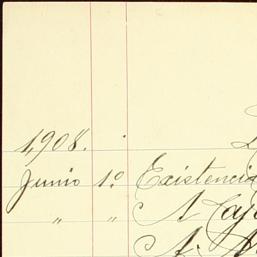 1,908.
Junio 1º Existencia
" " A Caj
A.